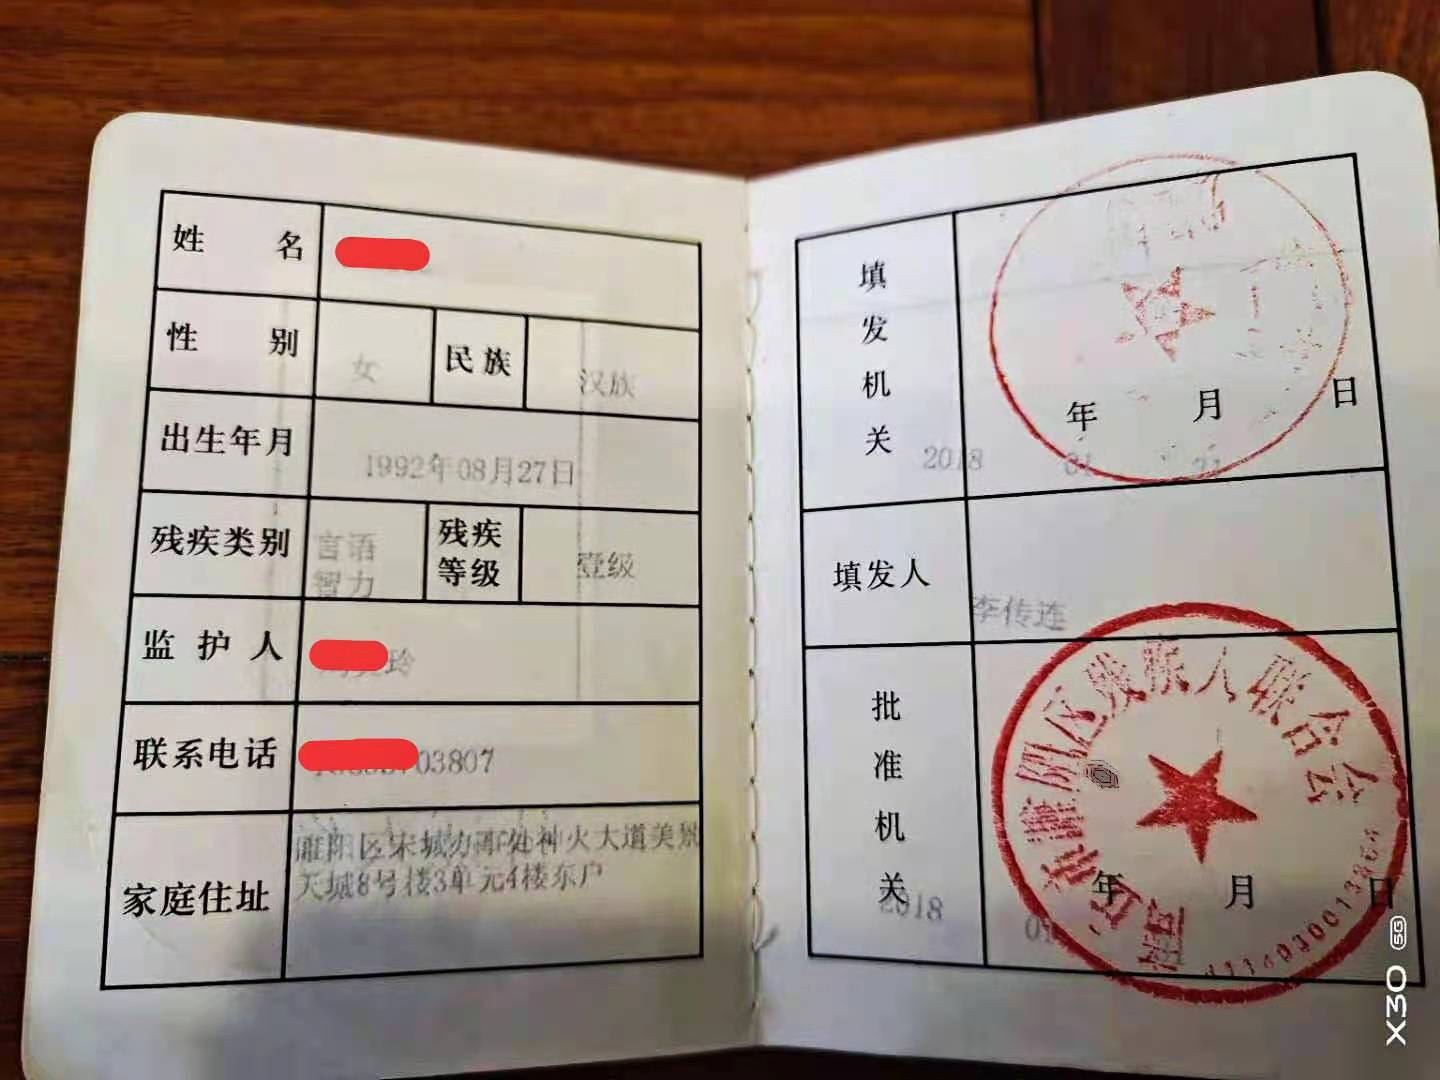 姓名
性别 女 民族 汉族
出生年月 1992年08月27日
残疾类别 言语 智力 残疾等级 壹级
监护人 玲
联系电话 03807
家庭住址 睢阳区宋城办事处神火大道美景
天城8号楼3单元4楼东户
填发机关
年 月 日
2018 01
填发人 李传连
批准机关
商丘市睢阳区残疾人联合会
年 月 日
2018 01
X30 5G